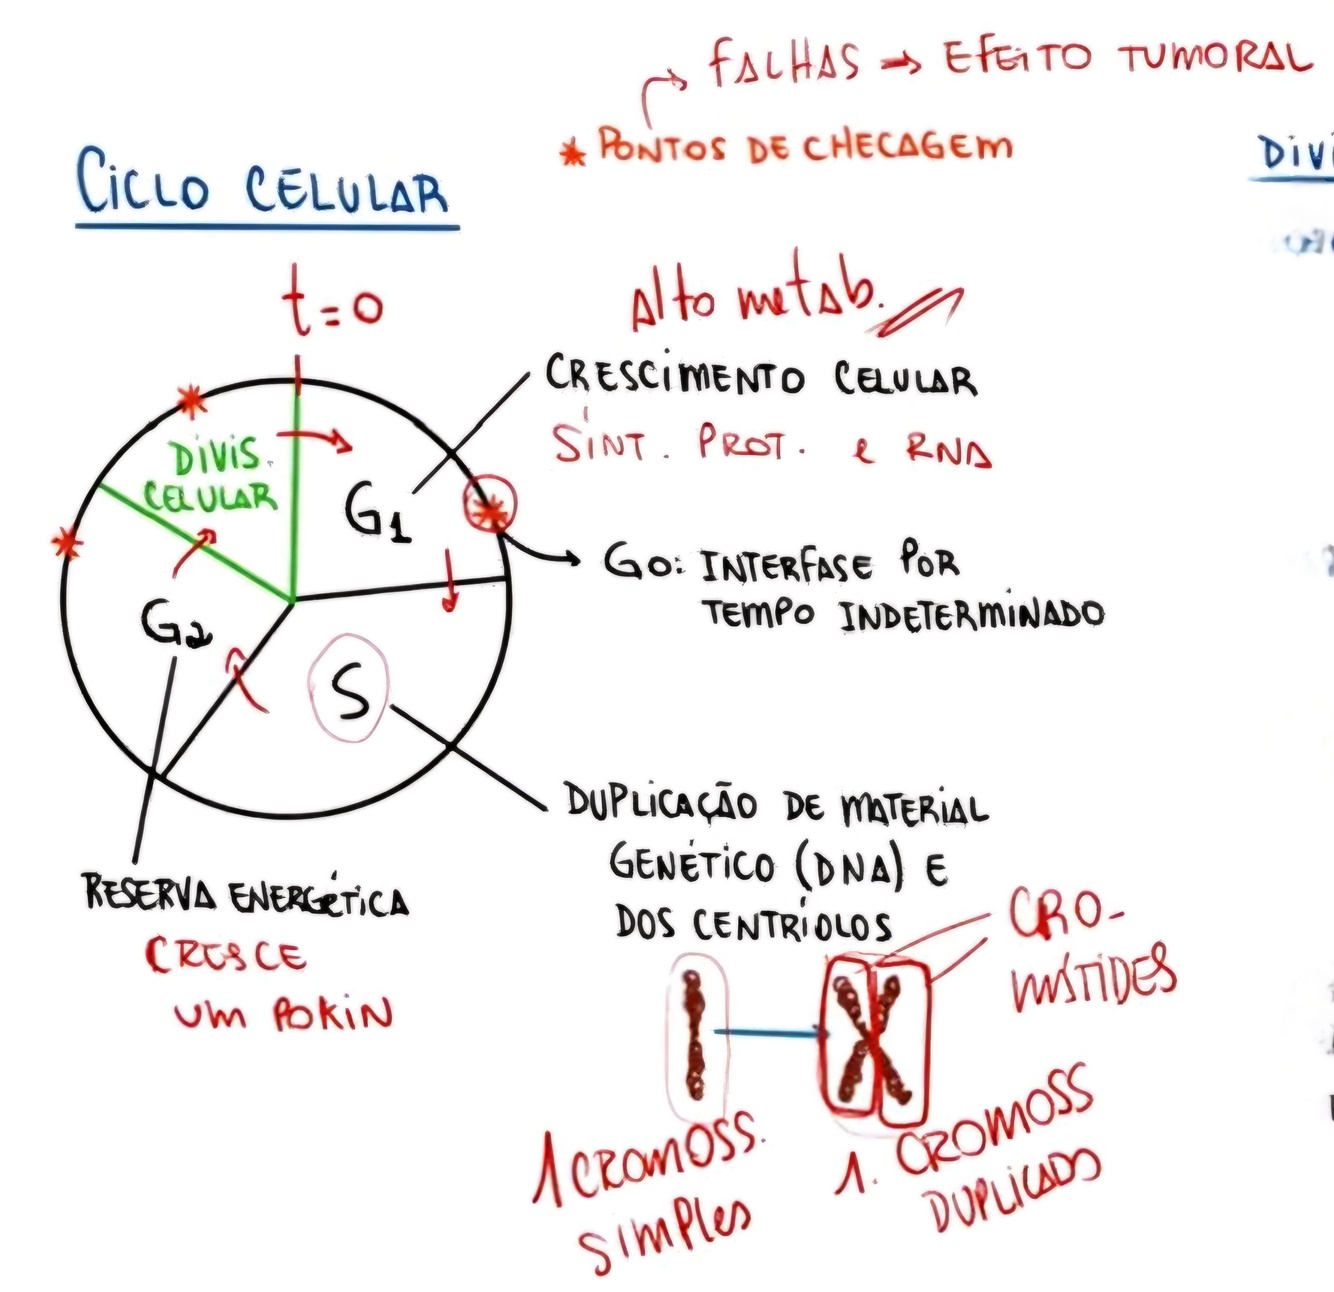 FALHAS → EFEITO TUMORAL
* PONTOS DE CHECAGEM
CICLO CELULAR
DIVI
t=0
Alto metab.
CRESCIMENTO CELULAR
SÍNT. PROT. e RNA
DIVIS.
CELULAR
G1
G0: INTERFASE POR
TEMPO INDETERMINADO
G2
S
DUPLICAÇÃO DE MATERIAL
GENÉTICO (DNA) E
DOS CENTRÍOLOS
RESERVA ENERGÉTICA
CRESCE
UM POKIN
CRO-
MÁTIDES
1 CROMOSS.
SIMPLES
1. CROMOSS
DUPLICADO